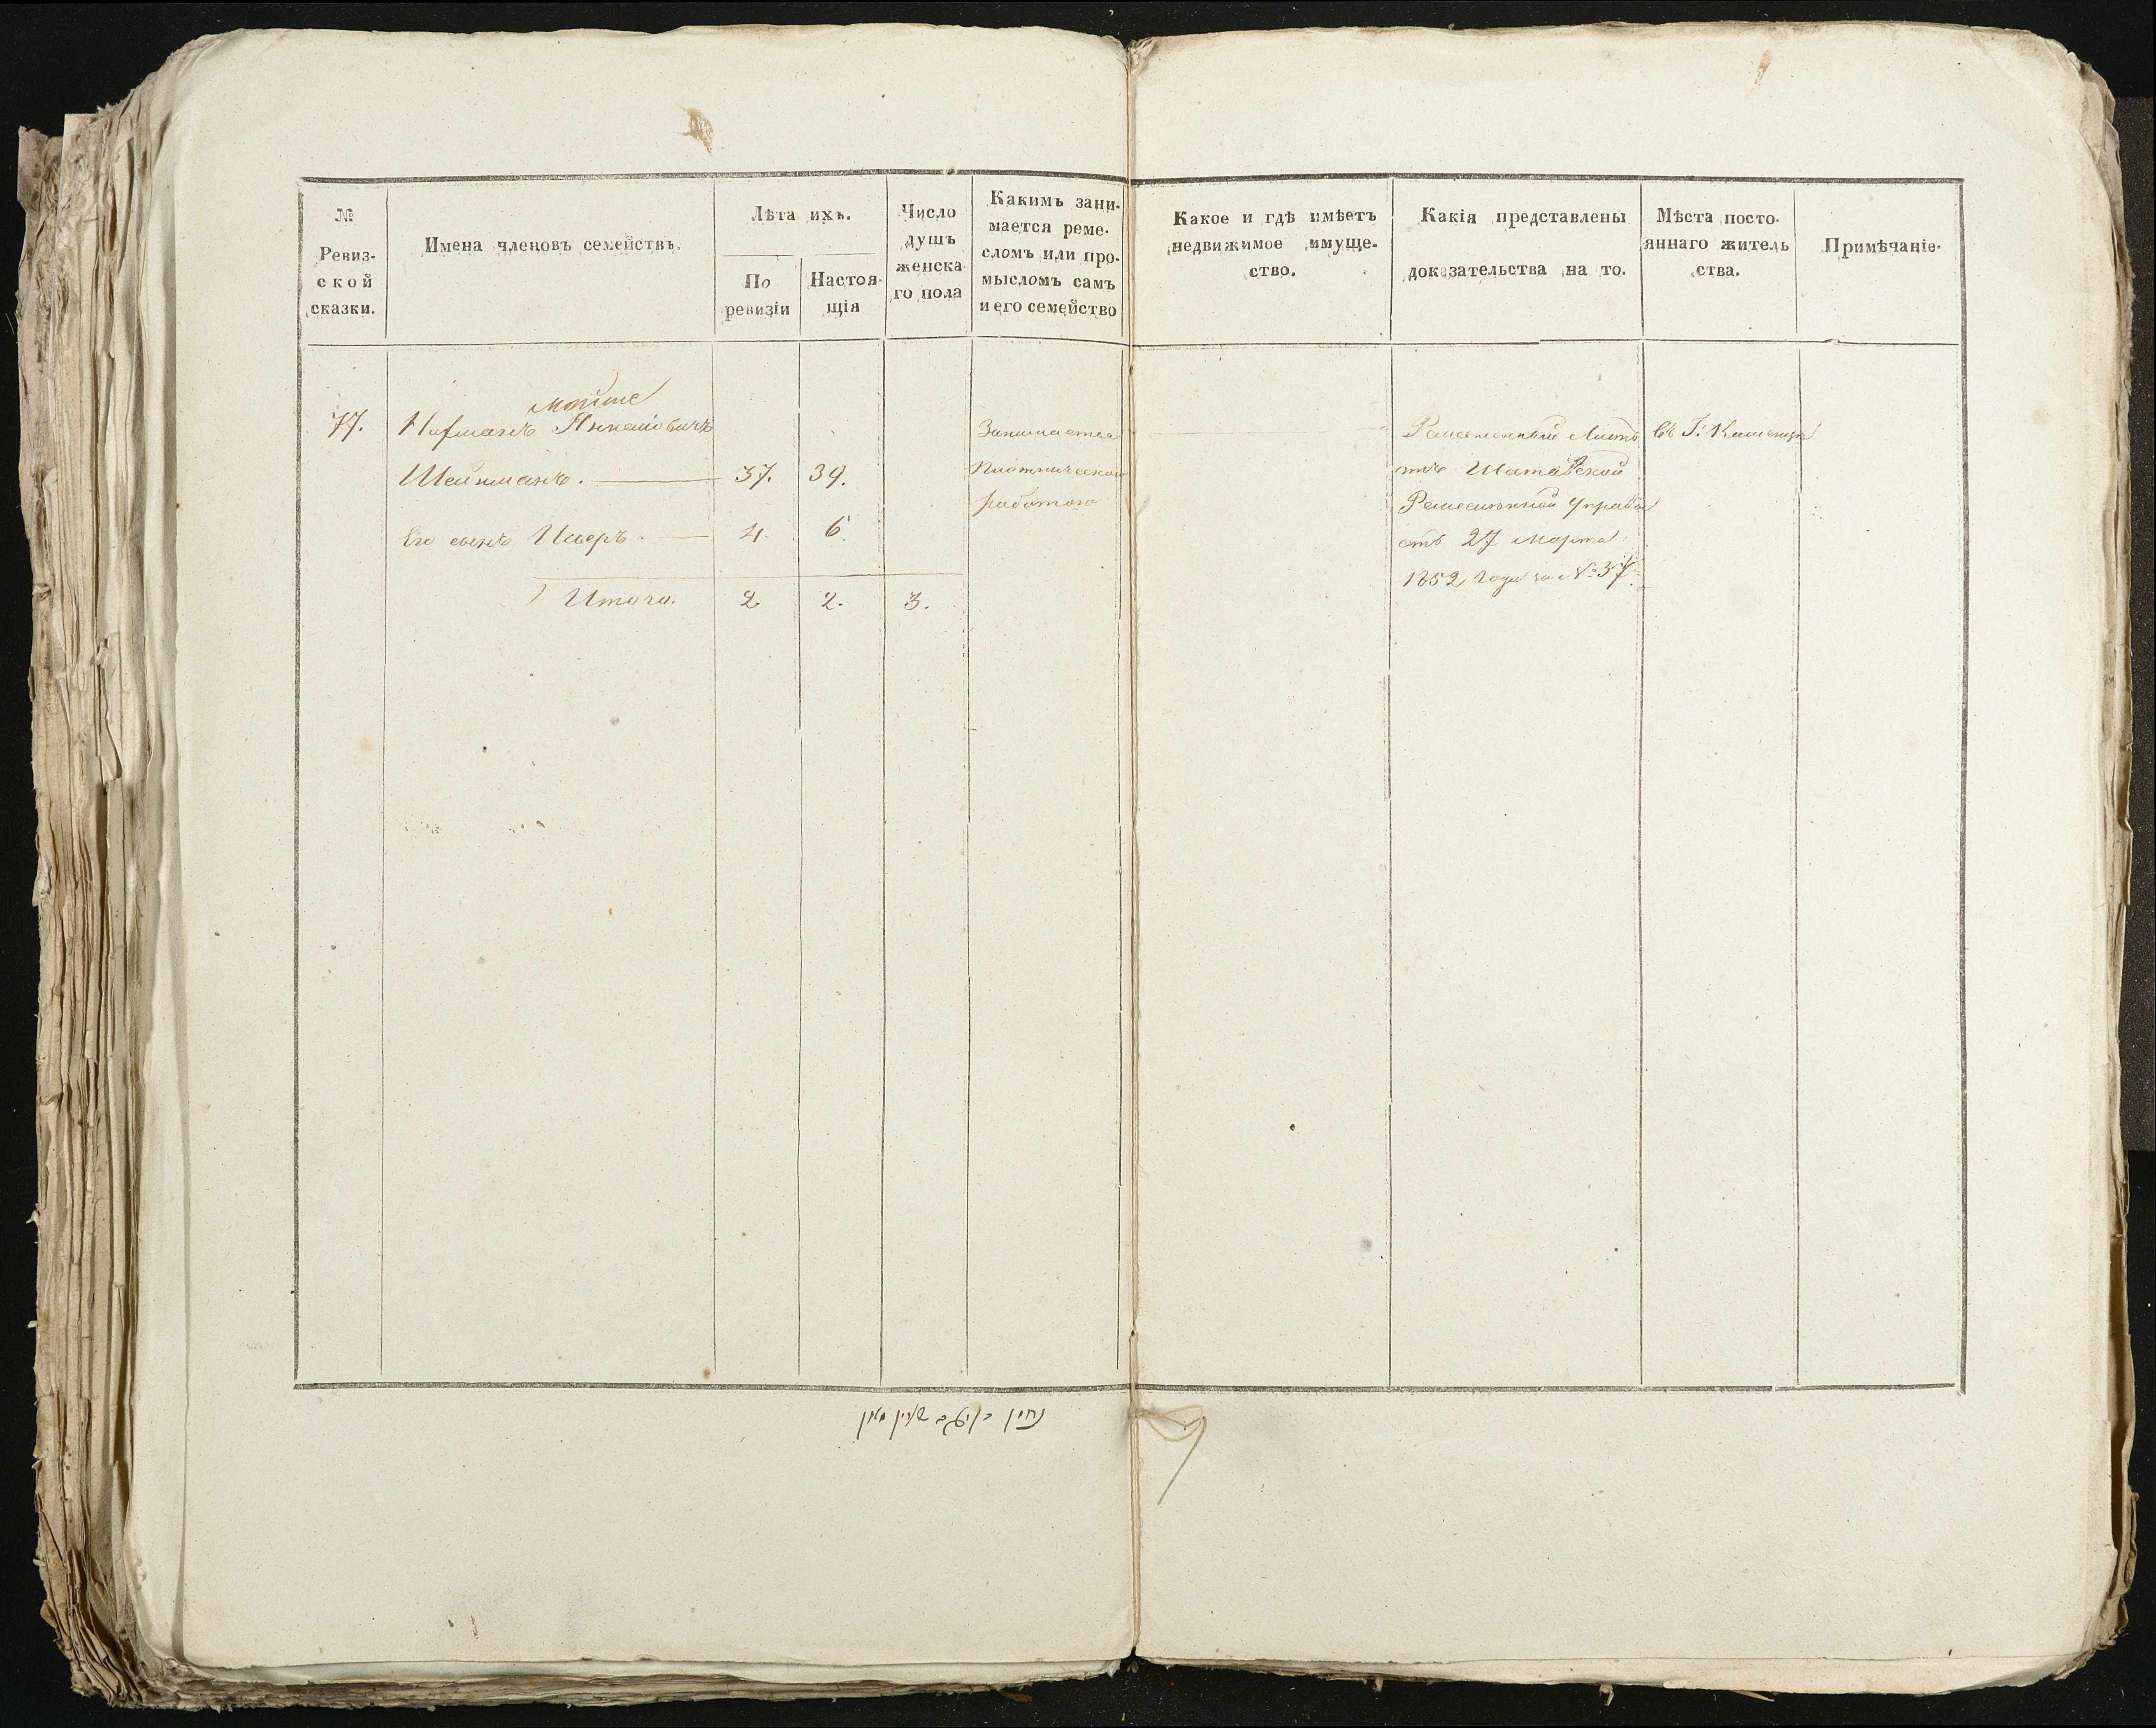 №
Ревиз-
ской
сказки.
Имена членовъ семействъ.
Лѣта ихъ.
По
ревизіи
Настоя-
щія
Число
душъ
женска
го пола
Какимъ зани-
мается реме-
сломъ или про-
мысломъ самъ
и его семейство
Какое и гдѣ имѣетъ
недвижимое имуще-
ство.
Какія представлены
доказательства на то.
Мѣста посто-
яннаго житель
ства.
Примѣчаніе.
77.
Мойше
Шейнманъ. 37. 39.
Его сынъ 4. 6.
Итого. 2 2. 3.
Занимается
Плотническою
работою
Ремесленный Листъ
Шатавской
Ремесленной Управы
отъ 27 Марта
1852 года за №37.
въ Г. Каменцѣ